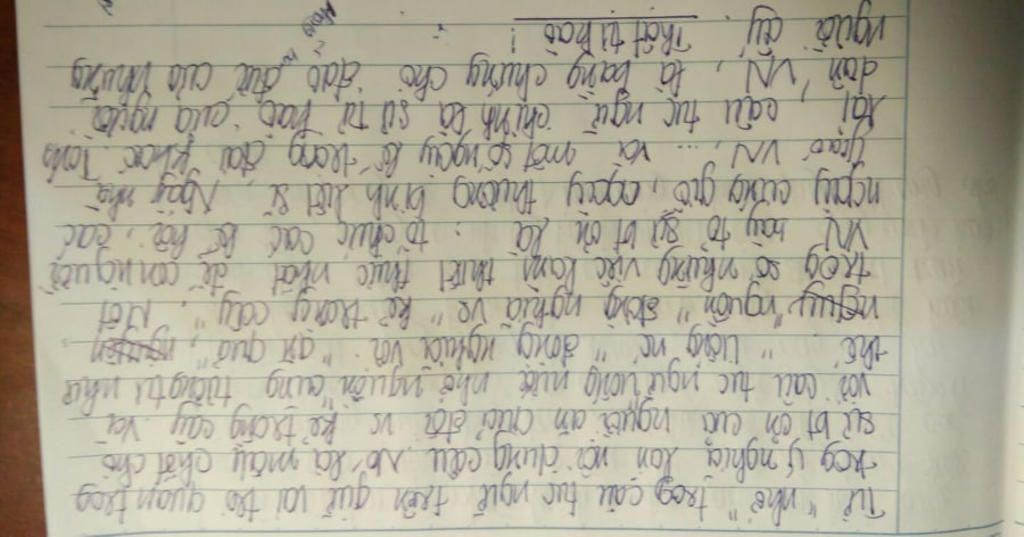 Từ "nhớ" trog câu tục ngữ trên giữ vai trò quan trọg
trog ý nghĩa lẫn nội dung câu. Nó là mấu chốt cho
sự bt ơn của người ăn chứ đối vs kẻ trồng cây. Và
với câu tục ngữ uống nước nhớ nguồn cũng tương tự như
thế. "Uống nc" đồng nghĩa với "ăn quả",
"nguồn" đồng nghĩa vs "kẻ trồng cây". Một
trog số những việc làm thiết thực nhất để con người
VN bày tỏ sự bt ơn là: tổ chức các lễ hội, các
ngày cúng giỗ, ngày thương binh liệt sĩ, Ngày nhà
giáo VN, ... và một số ngày lễ trong đại khác. Tóm
lại, câu tục ngữ chính là sự tự hào của người
dân VN, là bằng chứng cho đạo đức của những
người ấy. Thật tự hào!